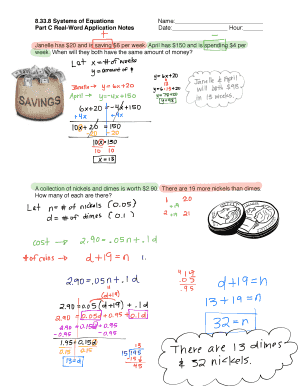 8.33.8 Systems of Equations Name:
Part C Real-Word Application Notes Date: Hour:
Janelle has $20 and is saving $6 per week. April has $150 and is spending $4 per
week. When will they both have the same amount of money?
Let x = # of weeks
y = amount of $
Janelle → y = 6x + 20
April → y = -4x + 150
6x + 20 = -4x + 150
+4x +4x
10x + 20 = 150
-20 -20
10x = 150
10 10
x = 13
y = 6x + 20
y = 6·13 + 20
y = 78 + 20
y = 98
Janelle & April
will both $98
in 13 weeks.
SAVINGS
A collection of nickels and dimes is worth $2.90. There are 19 more nickels than dimes.
How many of each are there?
Let n = # of nickels (0.05)
d = # of dimes (0.1)
1 +19 20
2 +19 21
cost → 2.90 = .05n + .1d
# of coins → d + 19 = n
2.90 = .05n + .1d
(d+19)
2.90 = 0.05(d+19) + .1d
2.90 = 0.05d + 0.95 + 0.1d
2.90 = 0.15d + 0.95
-0.95 -0.95
1.95 = 0.15d
0.15 0.15
13 = d
13
15|195
-15
45
4
19
.05
.95
d + 19 = n
13 + 19 = n
32 = n
There are 13 dimes
& 32 nickels.